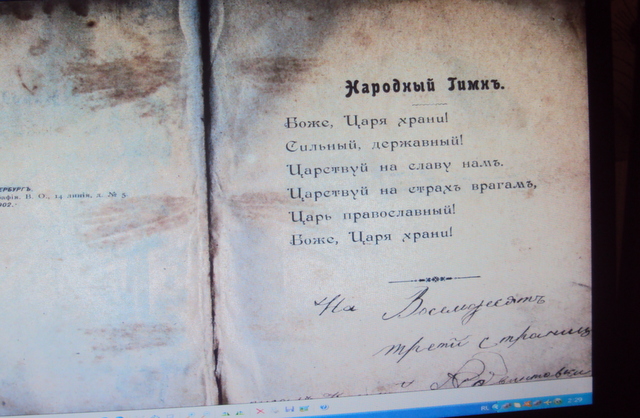 Народный Гимнъ.
Боже, Царя храни!
Сильный, державный!
Царствуй на славу намъ.
Царствуй на страхъ врагамъ,
Царь православный!
Боже, Царя храни!
На Восемдесятъ
трети страниц
ЕРБУРГЪ.
афія. В. О., 14 линія, д. № 5.
902.
2:29